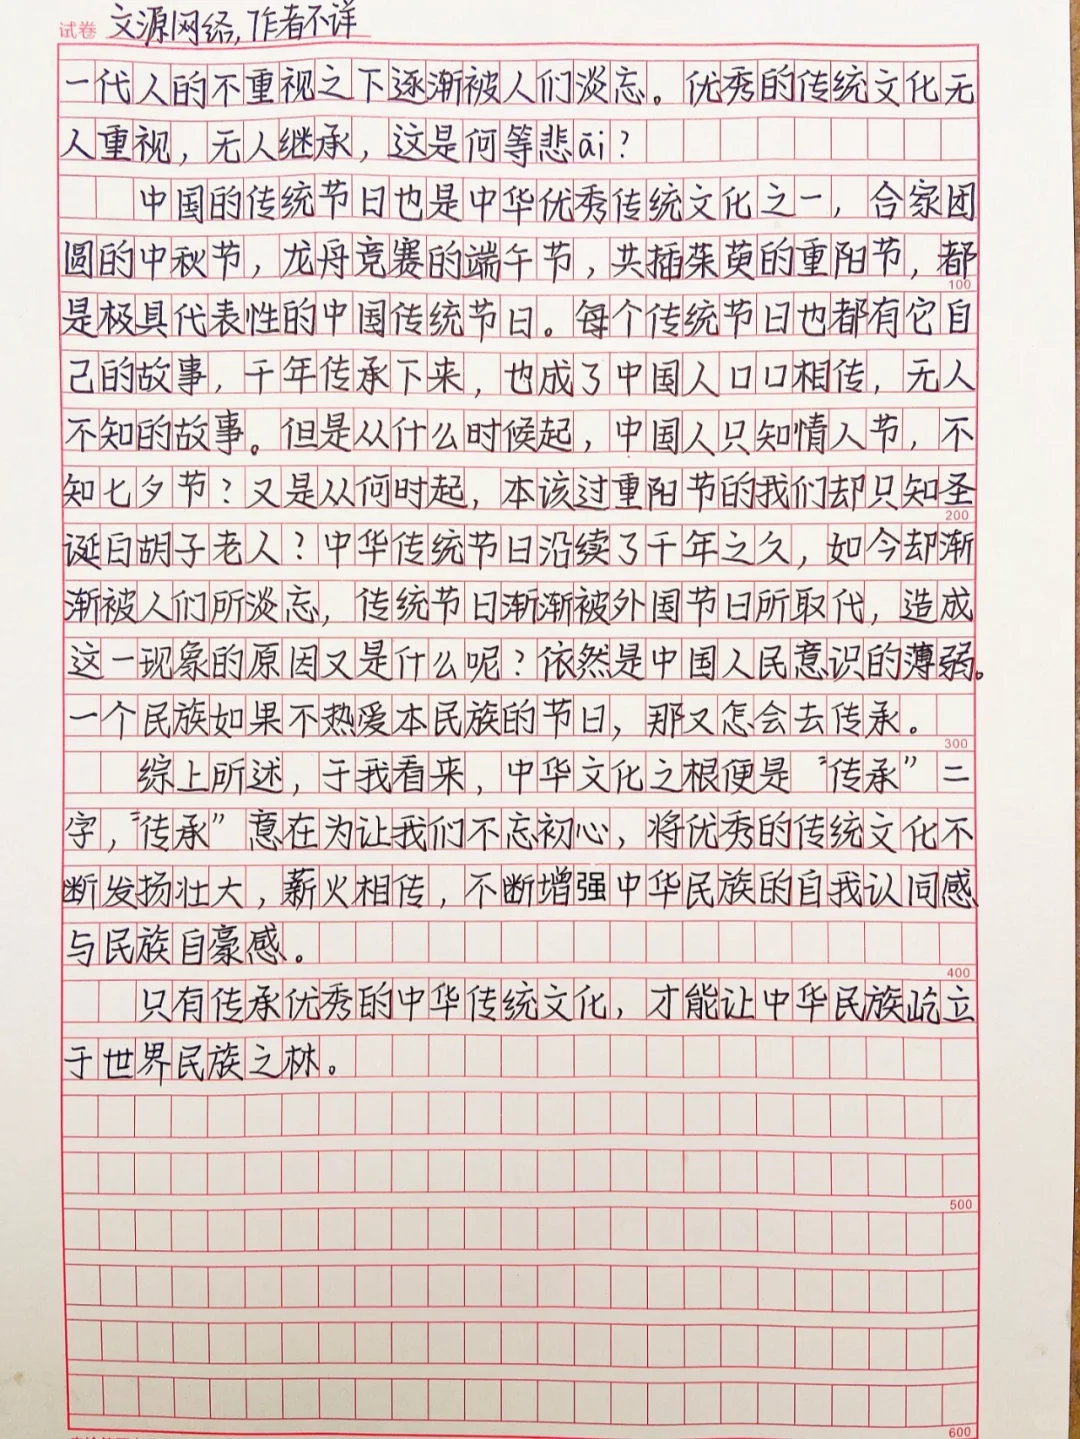 试卷 文源网络,作者不详
一代人的不重视之下逐渐被人们淡忘。优秀的传统文化无
人重视，无人继承，这是何等悲āi？
中国的传统节日也是中华优秀传统文化之一，合家团
圆的中秋节，龙舟竞赛的端午节，共插茱萸的重阳节，都
100
是极具代表性的中国传统节日。每个传统节日也都有它自
己的故事，千年传承下来，也成了中国人口口相传，无人
不知的故事。但是从什么时候起，中国人只知情人节，不
知七夕节？又是从何时起，本该过重阳节的我们却只知圣
200
诞白胡子老人？中华传统节日沿续了千年之久，如今却渐
渐被人们所淡忘，传统节日渐渐被外国节日所取代，造成
这一现象的原因又是什么呢？依然是中国人民意识的薄弱。
一个民族如果不热爱本民族的节日，那又怎会去传承。
300
综上所述，于我看来，中华文化之根便是“传承”二
字，“传承”意在为让我们不忘初心，将优秀的传统文化不
断发扬壮大，薪火相传，不断增强中华民族的自我认同感
与民族自豪感。
400
只有传承优秀的中华传统文化，才能让中华民族屹立
于世界民族之林。
500
600